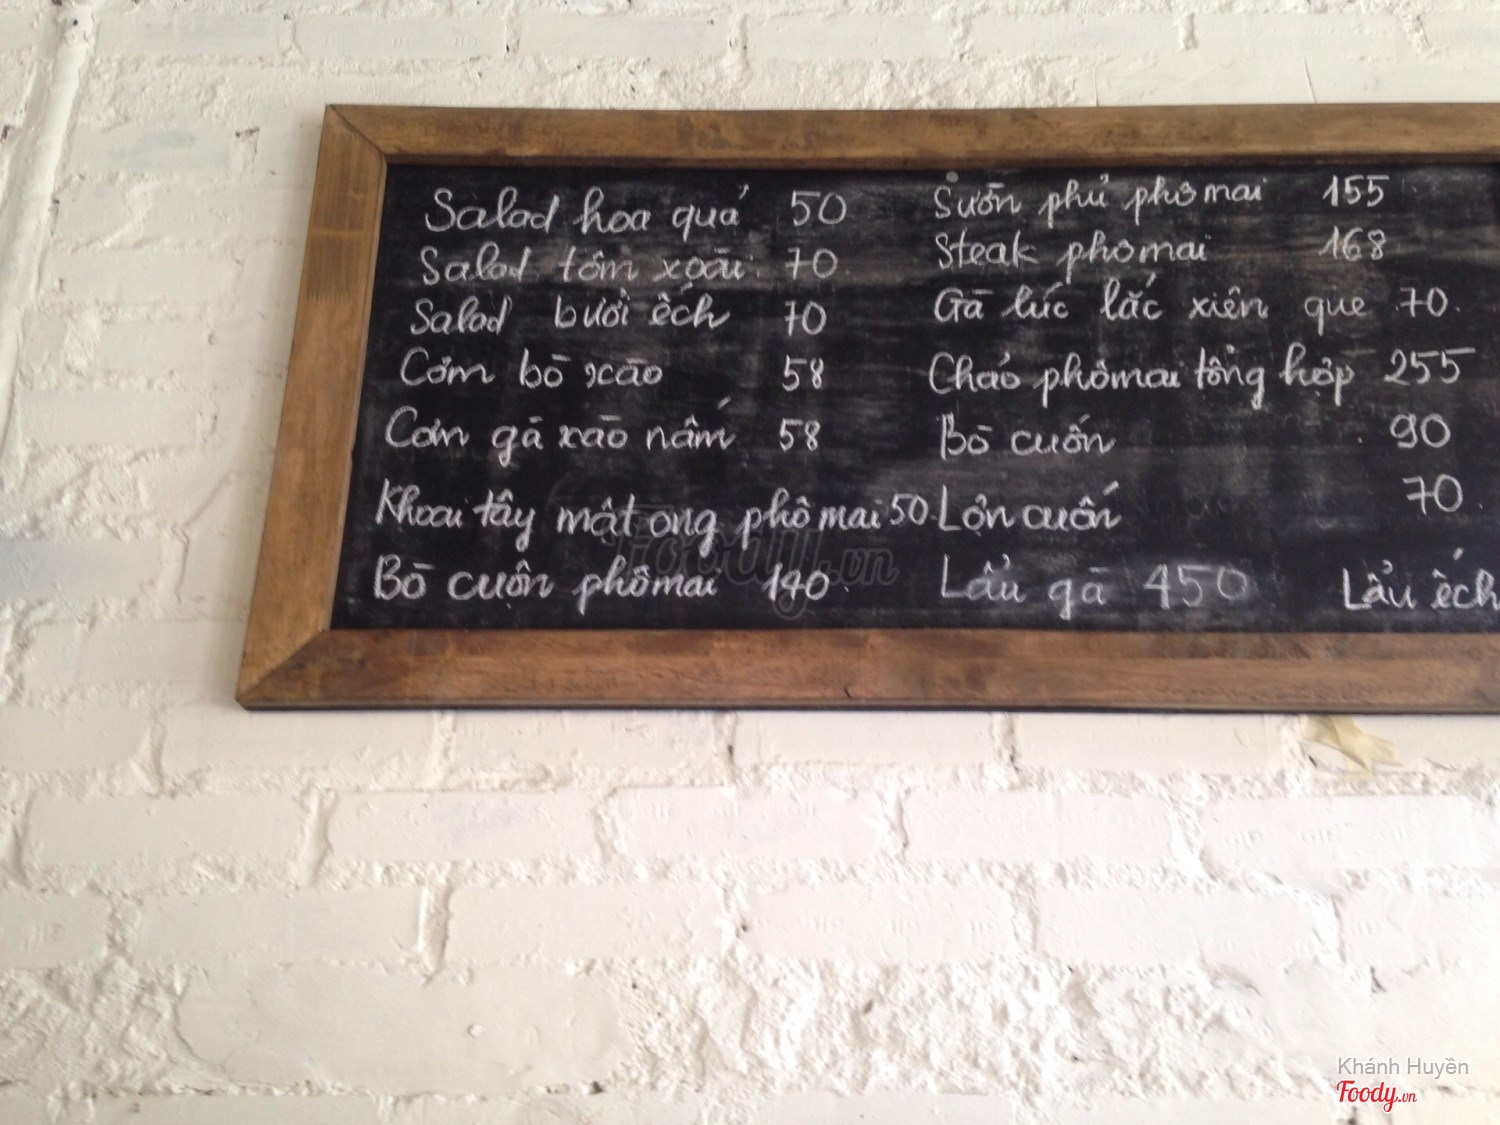 Salad hoa quả 50
Salad tôm xoài 70
Salad bưởi ếch 70
Cơm bò xào 58
Cơm gà xào nấm 58
Khoai tây mật ong phô mai 50
Bò cuộn phômai 140
Sườn phủ phô mai 155
Steak phômai 168
Gà lúc lắc xiên que 70
Chảo phômai tổng hợp 255
Bò cuốn 90
Lợn cuốn 70
Lẩu gà 450
Lẩu ếch
Foody.vn
Khánh Huyền
Foody.vn